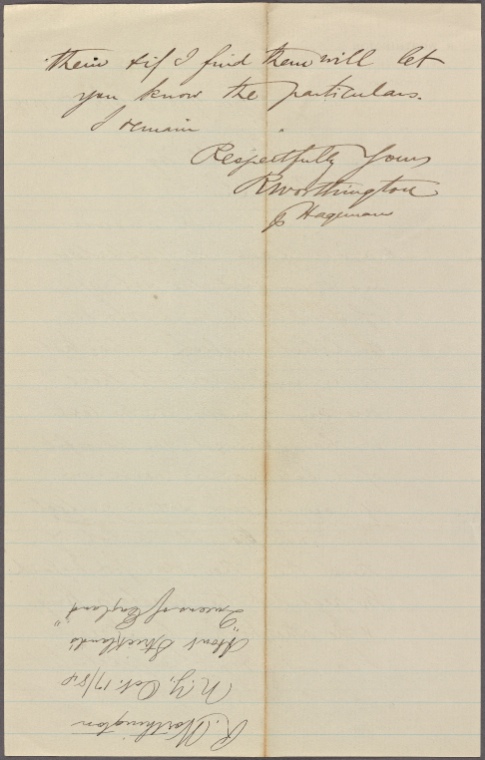 them & if I find them will let
you know the particulars.
I remain
Respectfully Yours
R Worthington
Hageman
R. Worthington
N.Y. Oct. 17/84
About Strickland's
"Queens of England"